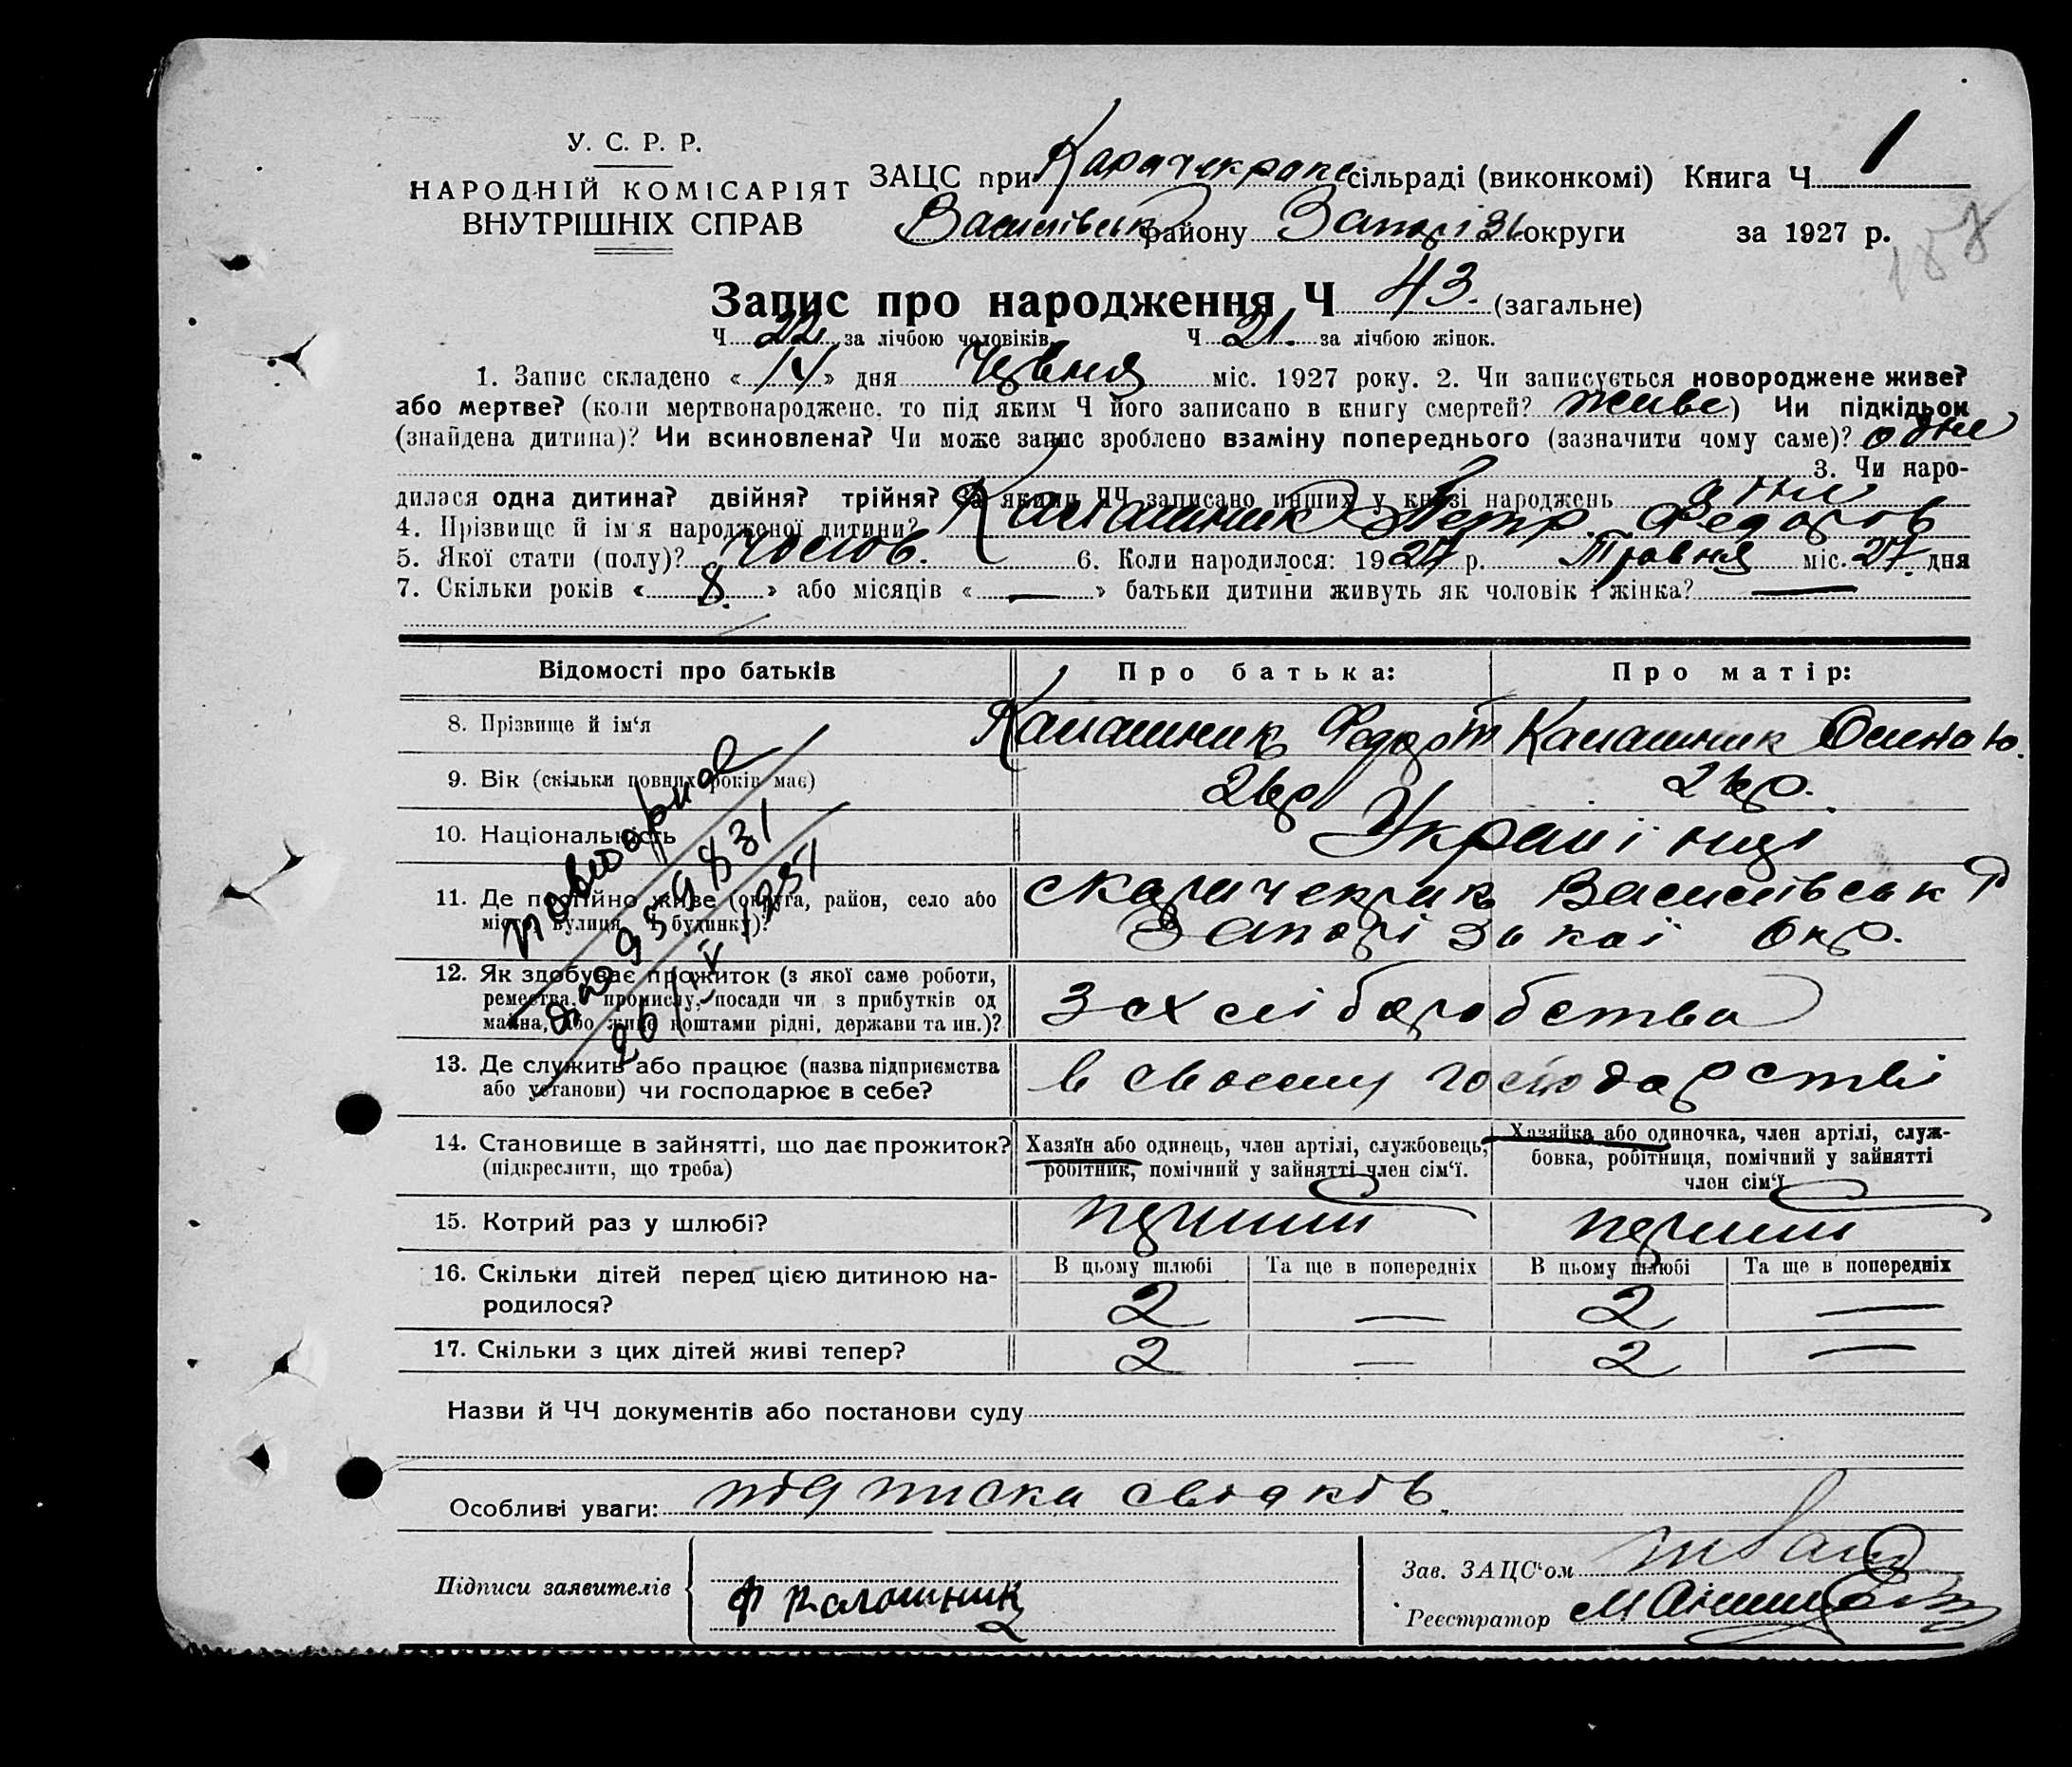 У. С. Р. Р.
НАРОДНІЙ КОМІСАРІЯТ
ВНУТРІШНІХ СПРАВ
ЗАЦС при Карачекраке сільраді (виконкомі) Книга Ч 1
Василівськ району Запоріз округи за 1927 р.
188
Запис про народження Ч 43. (загальне)
Ч 22 за лічбою чоловіків. Ч 21. за лічбою жінок.
1. Запис складено «14» дня Червня міс. 1927 року. 2. Чи записується новороджене живе?
або мертве? (коли мертвонароджене, то під яким Ч його записано в книгу смертей? живе) Чи підкідьок
(знайдена дитина)? Чи всиновлена? Чи може запис зроблено взаміну попереднього (зазначити чому саме)? одне
3. Чи наро-
дилася одна дитина? двійня? трійня? За якими ЧЧ записано инших у книзі народжень одне
4. Прізвище й ім'я народженої дитини? Калашник Петр Федоров
5. Якої стати (полу)? чолов. 6. Коли народилося: 1927 р. Травня міс. 27 дня
7. Скільки років «8» або місяців «—» батьки дитини живуть як чоловік і жінка? —
Відомості про батьків Про батька: Про матір:
8. Прізвище й ім'я Калашник Федор Калашник
9. Вік (скільки повних років має) 26 р 26 р.
10. Національність Українці
11. Де постійно живе (округа, район, село або Василівськ Р
місто, вулиця, Ч будинку)? Запорізької Окр.
12. Як здобуває прожиток (з якої саме роботи,
ремества, промислу, посади чи з прибутків од
майна, або живе коштами рідні, держави та ин.)? З хліборобства
13. Де служить або працює (назва підприємства
або установи) чи господарює в себе? в своему господарстві
повторное
26/V 1951
14. Становище в зайнятті, що дає прожиток? Хазяїн або одинець, член артілі, службовець, Хазяйка або одиночка, член артілі, служ-
(підкреслити, що треба) робітник, помічний у зайнятті член сім'ї. бовка, робітниця, помічний у зайнятті
член сім'ї
15. Котрий раз у шлюбі? перший перший
16. Скільки дітей перед цією дитиною на- В цьому шлюбі Та ще в попередніх В цьому шлюбі Та ще в попередніх
родилося? 2 — 2 —
17. Скільки з цих дітей живі тепер? 2 — 2 —
Назви й ЧЧ документів або постанови суду
Особливі уваги: підписка свідків.
Підписи заявителів Ф Калашник
Зав. ЗАЦС'ом
Реєстратор